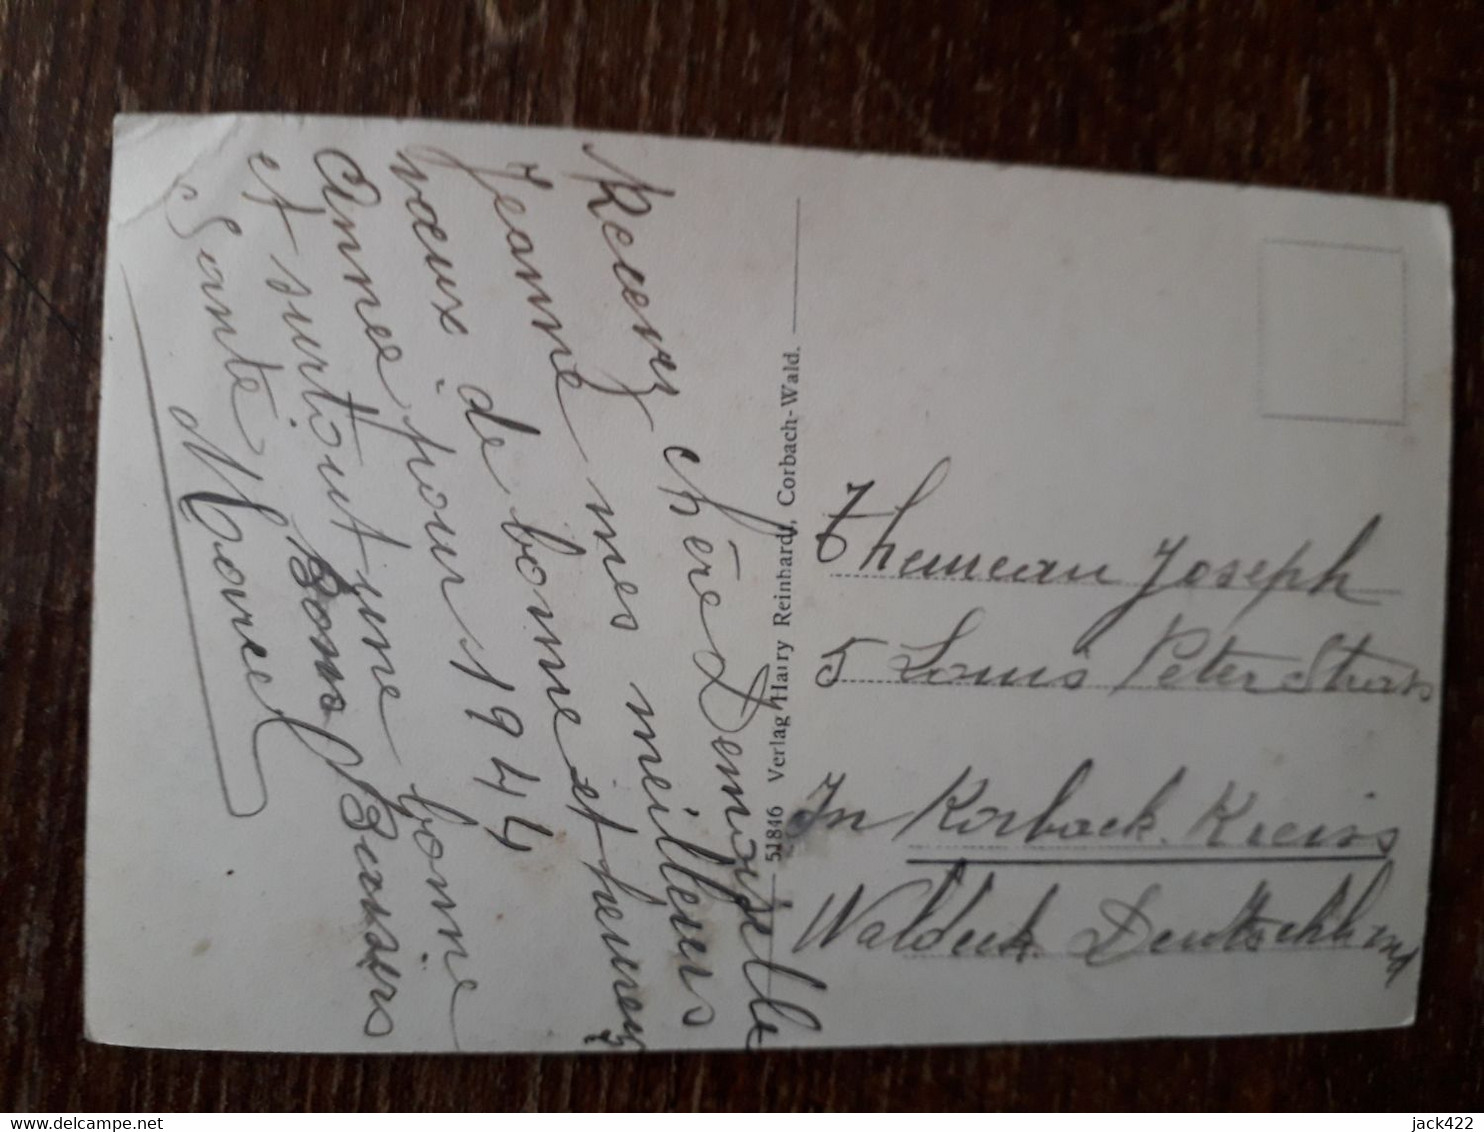 Recevez chère Demoiselle
Jeanne mes meilleurs
vœux de bonne et heureuz
Annee pour 1944
et surtout une bonne
Sante Bons Baisers
Marcel
51846 Verlag Harry Reinhardt, Corbach-Wald.
Joseph
5 Louis Peter Strass
In Korback. Kreiss
Waldeck. Deutschland
delcampe.net
jack422